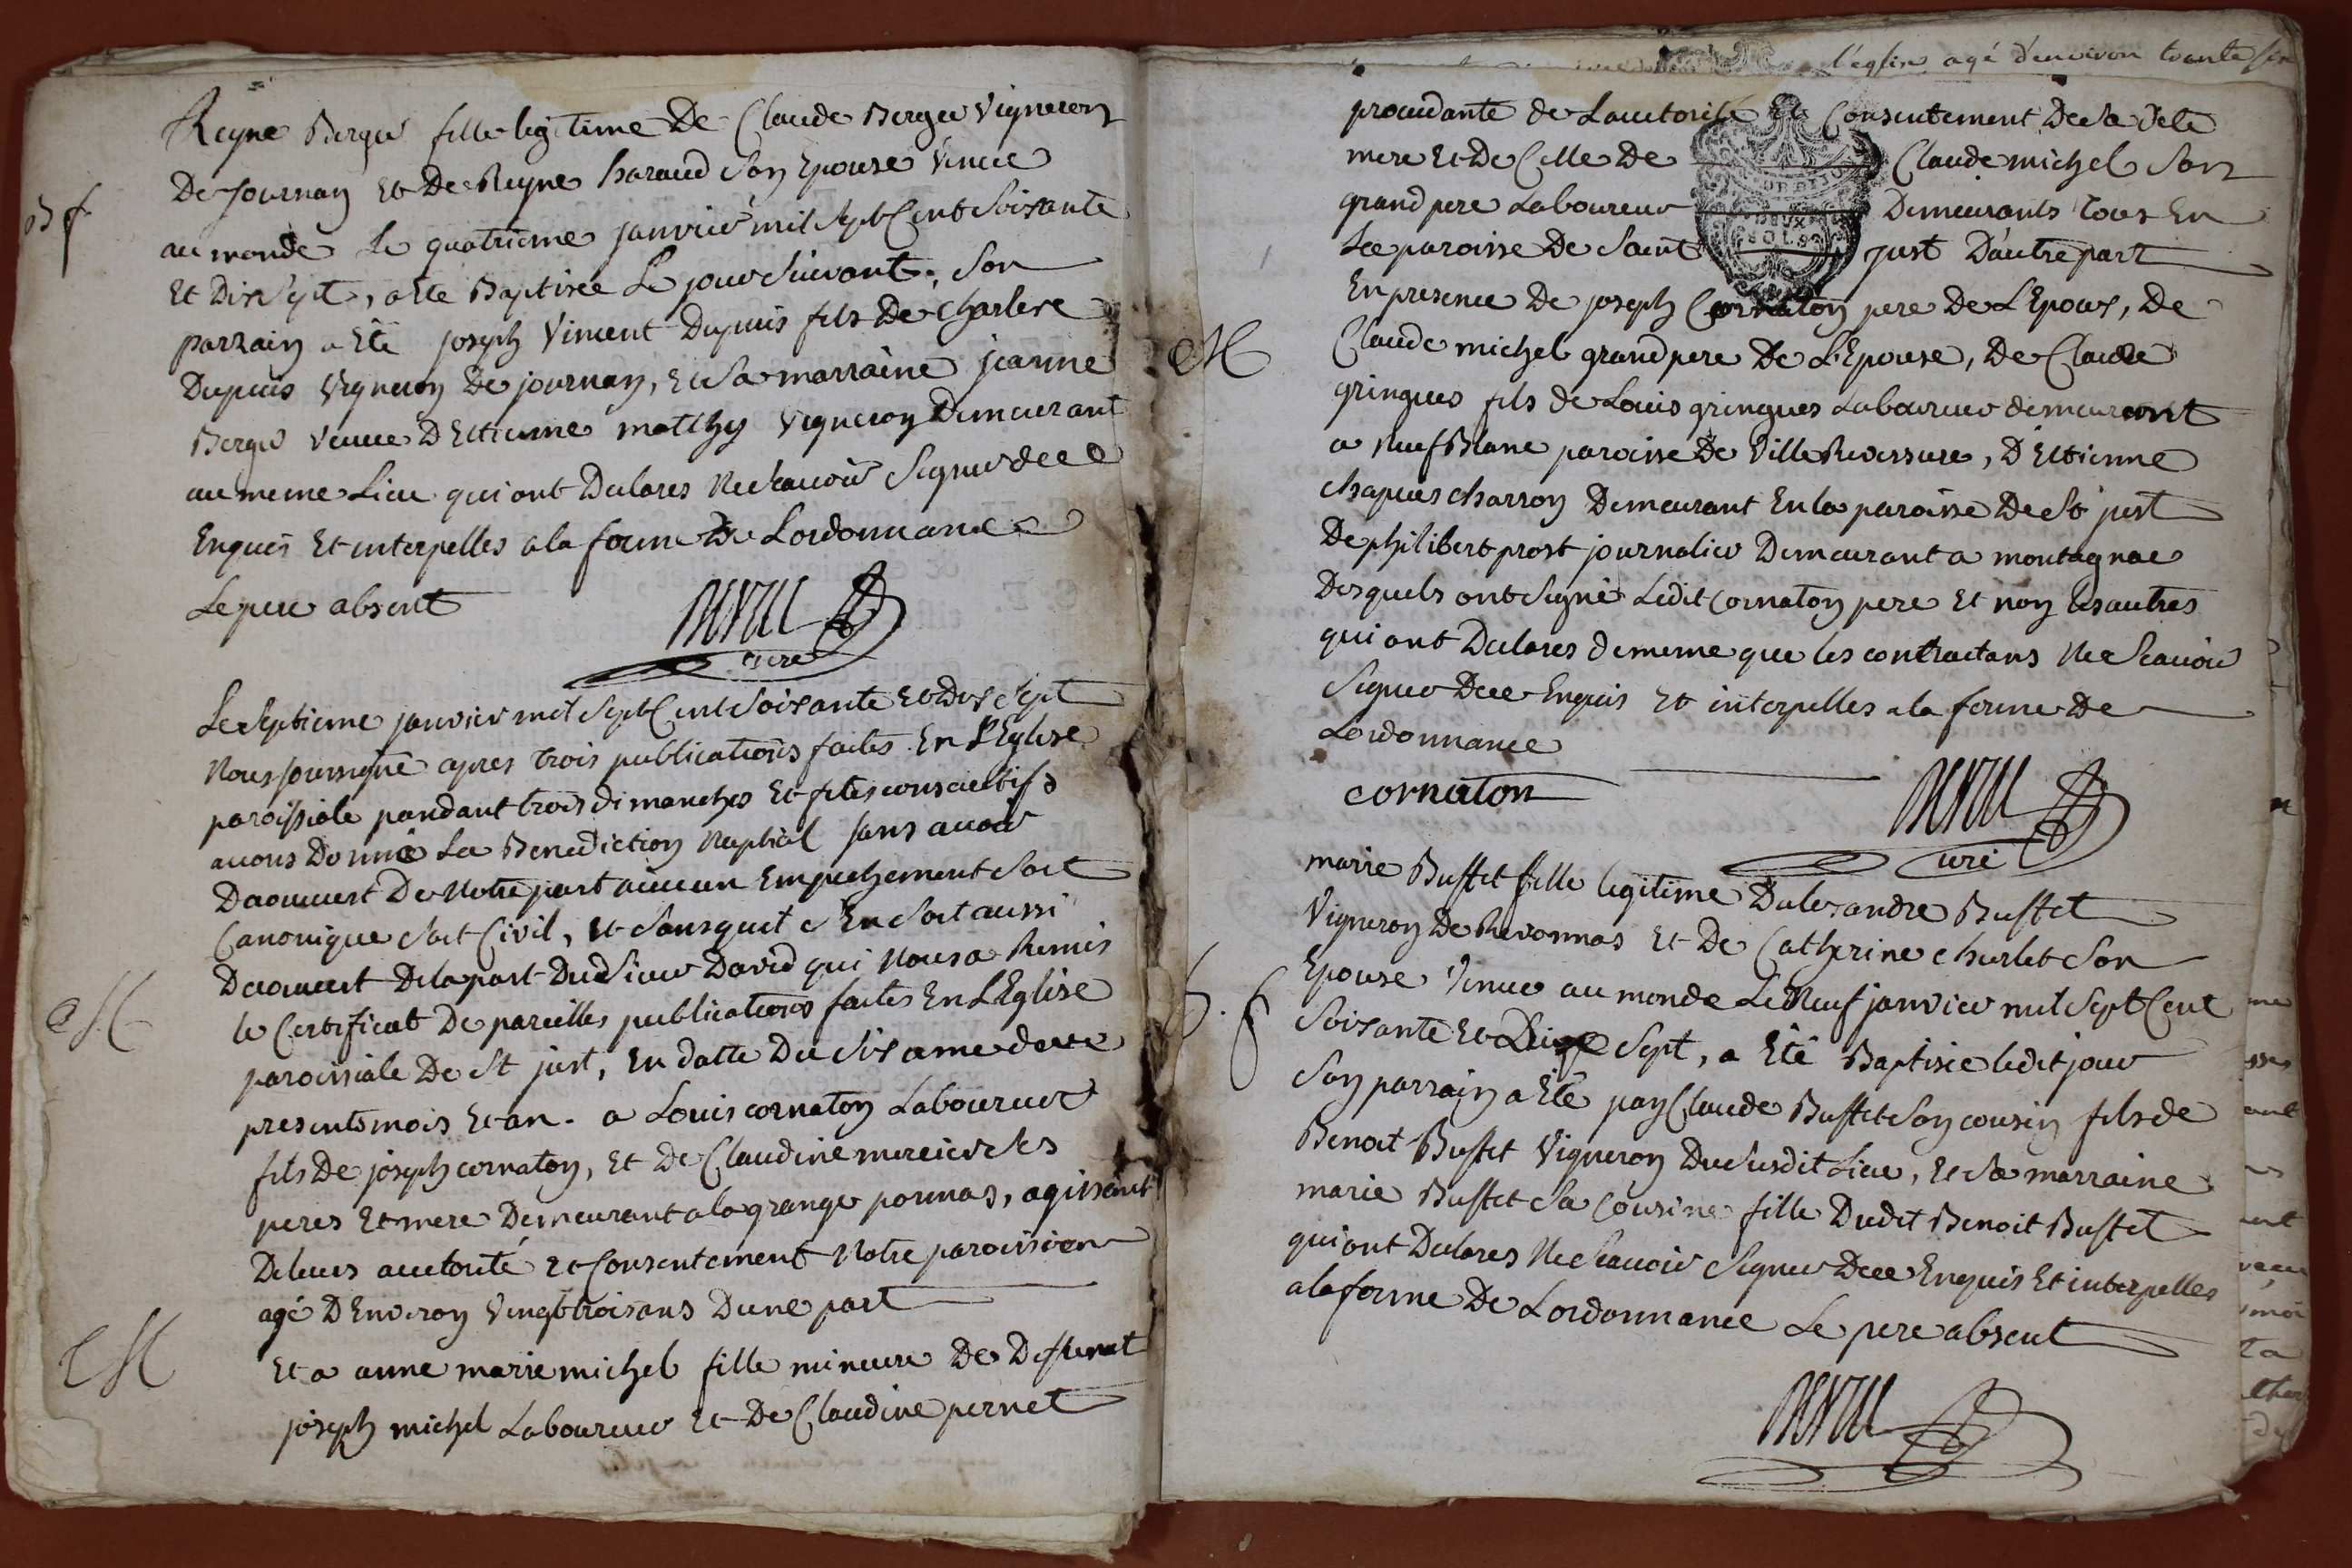 Reyne Berger fille legitime De Claude Berger Vigneron
De Journan Et De Reyne haraud Son Epouse Venue
Bf
au monde Le quatrieme janvier mil Sept Cent Soixante
Et Dix Sept, a Ete Baptisée Le jour Suivant. Son
parrain a Eté joseph Vincent Dupuis fils De Charle
Dupuis Vigneron De journan, Et Sa marraine jeanne
Berger Veuve D'Ettienne matthy Vigneron Demeurant
au meme Lieu qui ont Declarés Ne Scavoir Signer de ce
Enquis Et interpelles a la forme De Lordonnance
Le pere absent
curé
Le Septieme janvier mil Sept Cent Soixante Et Dix Sept
Nous soussigné apres trois publications faites En L'Eglise
paroissiale pandant trois dimanches Et fetes consecutifs
avons Donné La Benediction Nuptial sans avoir
Decouvert De Notre part aucun Empechement Soit
Canonique Soit Civil, Et Sans quil s'En Soit aussi
Decouvert De la part Du Sieur David qui Nous a Remis
M
le Certificat De pareilles publications faites En L'Eglise
paroissiale De St just, En datte Du Sixieme de ce
presents mois Et an. a Louis cornaton Laboureur
fils De joseph cornaton, Et De Claudine mercier Ses
peres Et mere Demeurant a la grange pournas, agissant
De leurs auctorité Et Consentement Notre paroissien
agé D'Environ Vingt trois ans D'une part
M
Et a anne marie michel fille mineure De Deffunt
joseph michel Laboureur Et De Claudine pernet
l'église agé d'environ trante six
procedante de Lauctorité Et Consentement De Sa dete
mere Et De Celle De Claude michel Son
grand pere Laboureur Demeurants tous En
La paroisse De Saint just D'autre part
En presence De joseph Cornaton pere De L'Epoux, De
M
Claude michel grand pere De L'Epouse, De Claude
gringues fils de Louis gringues Laboureur demeurant
a Neuf Blanc paroisse De Ville Reversure, D'Ettienne
chapuis charron Demeurant En la paroisse De St just
De philibert prost journalier Demeurant a montagnac
Desquels ont Signé Ledit Cornaton pere Et non les autres
qui ont Declares de meme que les contractans Ne Scavoir
Signer De ce Enquis Et interpelles a la forme De
Lordonnance
cornaton
curé
marie Buffet fille legitime D'alexandre Buffet
Vigneron De Revonnas Et De Catherine charlet Son
Epouse Venue au monde Le Neuf janvier mil Sept Cent
B. f
Soixante Et Dix Sept, a Eté Baptisée ledit jour
Son parrain a Eté Claude Buffet Son cousin fils de
Benoit Buffet Vigneron Du Susdit Lieu, Et Sa marraine
marie Buffet Sa Cousine fille Dudit Benoit Buffet
qui ont Declares Ne Scavoir Signer De ce Enquis Et interpelles
a la forme De Lordonnance Le pere absent